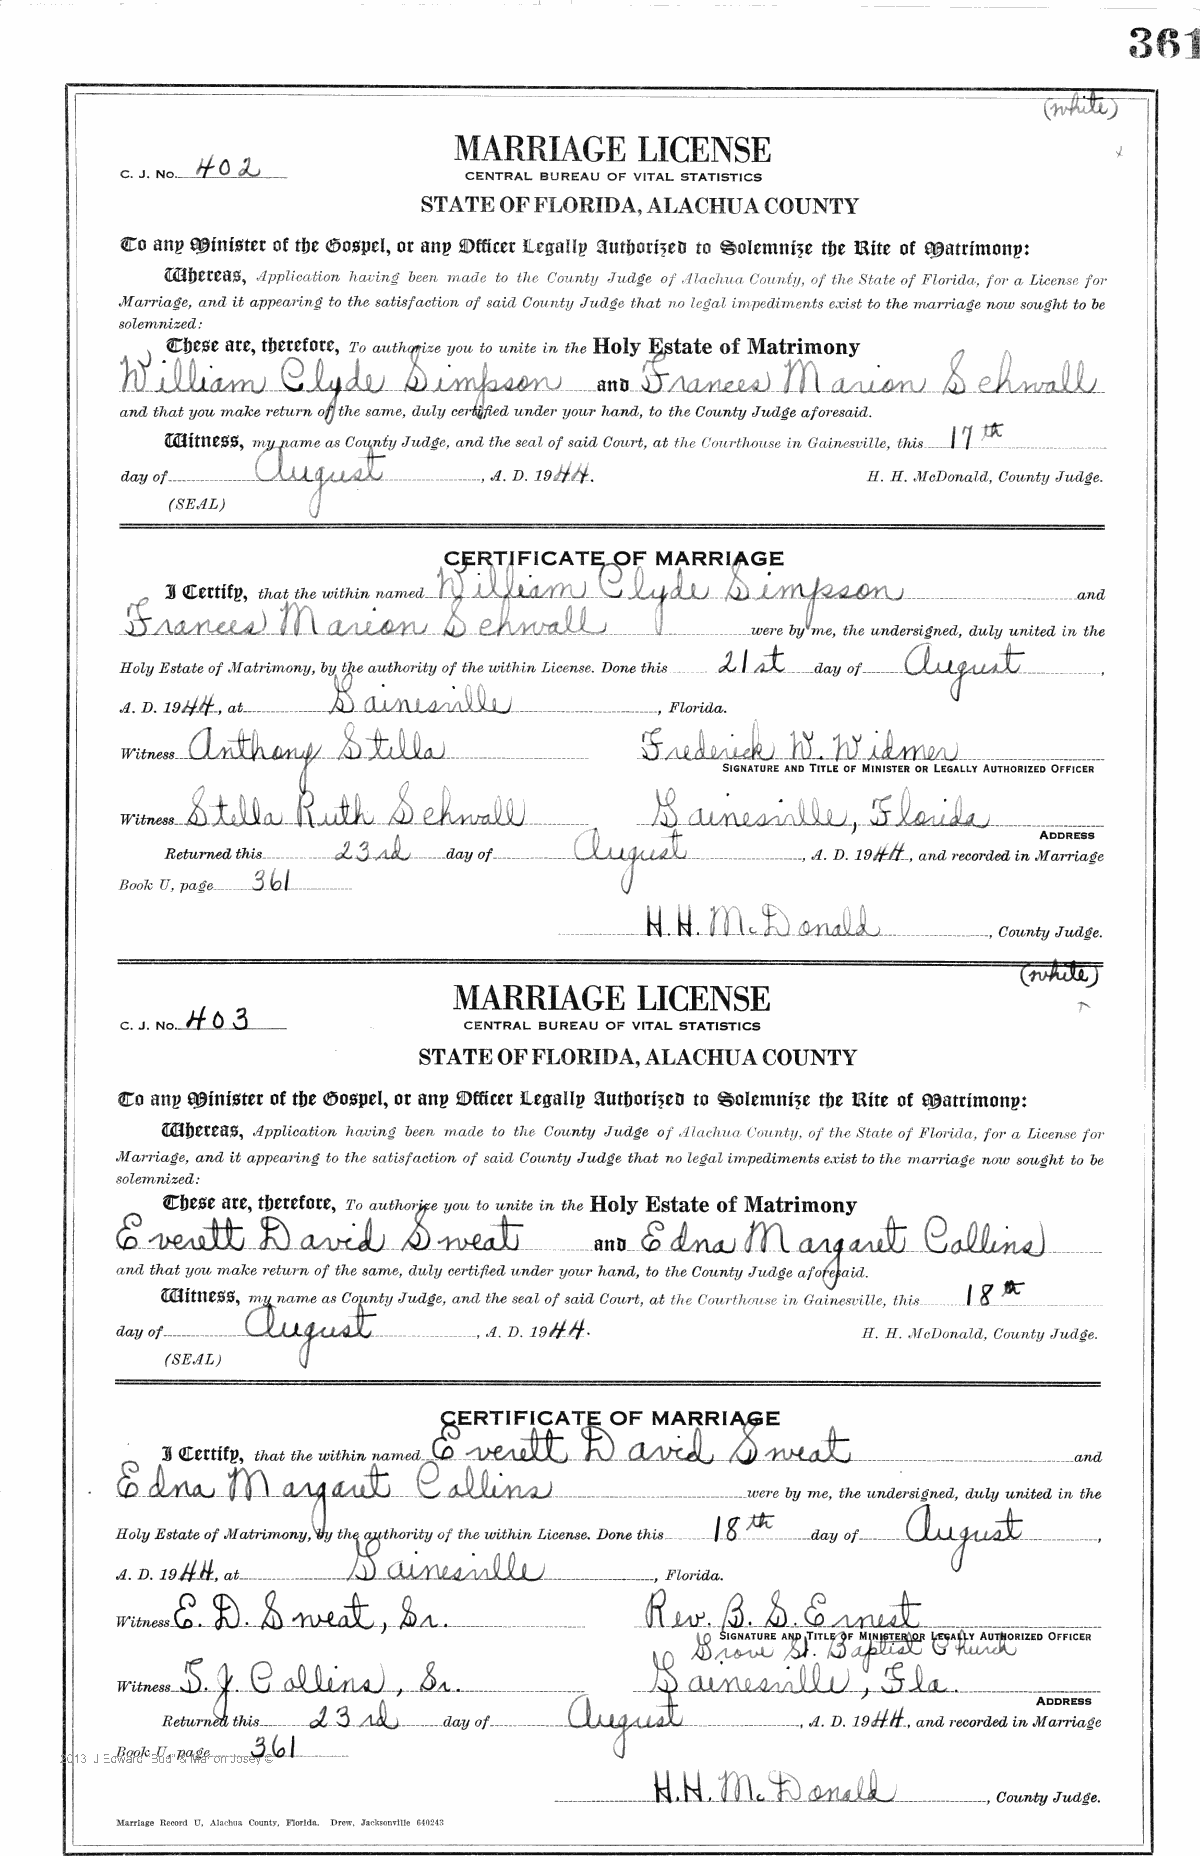 361
(white)
MARRIAGE LICENSE
C. J. No. 402
CENTRAL BUREAU OF VITAL STATISTICS
STATE OF FLORIDA, ALACHUA COUNTY
To any Minister of the Gospel, or any Officer Legally Authorized to Solemnize the Rite of Matrimony:
Whereas, Application having been made to the County Judge of Alachua County, of the State of Florida, for a License for
Marriage, and it appearing to the satisfaction of said County Judge that no legal impediments exist to the marriage now sought to be
solemnized:
These are, therefore, To authorize you to unite in the Holy Estate of Matrimony
William Clyde Simpson and Frances Marion Schwall
and that you make return of the same, duly certified under your hand, to the County Judge aforesaid.
Witness, my name as County Judge, and the seal of said Court, at the Courthouse in Gainesville, this 17th
day of August, A. D. 1944. H. H. McDonald, County Judge.
(SEAL)
CERTIFICATE OF MARRIAGE
I Certify, that the within named William Clyde Simpson and
Frances Marion Schwall were by me, the undersigned, duly united in the
Holy Estate of Matrimony, by the authority of the within License. Done this 21st day of August,
A. D. 1944, at Gainesville, Florida.
Witness Anthony Stella Frederick W. Widmer
SIGNATURE AND TITLE OF MINISTER OR LEGALLY AUTHORIZED OFFICER
Witness Stella Ruth Schwall Gainesville, Florida
ADDRESS
Returned this 23rd day of August, A. D. 1944, and recorded in Marriage
Book U, page 361
H. H. McDonald, County Judge.
(white)
MARRIAGE LICENSE
C. J. No. 403
CENTRAL BUREAU OF VITAL STATISTICS
STATE OF FLORIDA, ALACHUA COUNTY
To any Minister of the Gospel, or any Officer Legally Authorized to Solemnize the Rite of Matrimony:
Whereas, Application having been made to the County Judge of Alachua County, of the State of Florida, for a License for
Marriage, and it appearing to the satisfaction of said County Judge that no legal impediments exist to the marriage now sought to be
solemnized:
These are, therefore, To authorize you to unite in the Holy Estate of Matrimony
Everett David Sweat and Edna Margaret Collins
and that you make return of the same, duly certified under your hand, to the County Judge aforesaid.
Witness, my name as County Judge, and the seal of said Court, at the Courthouse in Gainesville, this 18th
day of August, A. D. 1944. H. H. McDonald, County Judge.
(SEAL)
CERTIFICATE OF MARRIAGE
I Certify, that the within named Everett David Sweat and
Edna Margaret Collins were by me, the undersigned, duly united in the
Holy Estate of Matrimony, by the authority of the within License. Done this 18th day of August,
A. D. 1944, at Gainesville, Florida.
Witness E. D. Sweat, Sr. Rev. B. S. Ernest
SIGNATURE AND TITLE OF MINISTER OR LEGALLY AUTHORIZED OFFICER
Grove St. Baptist Church
Witness T. J. Collins, Sr. Gainesville, Fla.
ADDRESS
Returned this 23rd day of August, A. D. 1944, and recorded in Marriage
Book U, page 361
2013 J Edward "Bud" & Marion Josey ©
H. H. McDonald, County Judge.
Marriage Record U, Alachua County, Florida. Drew, Jacksonville 640243